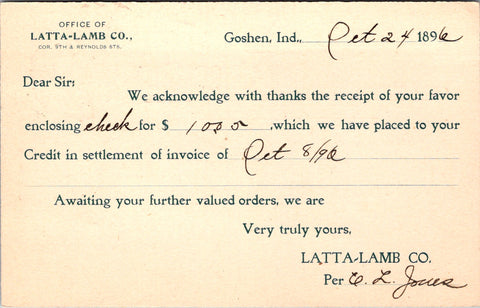 OFFICE OF
LATTA-LAMB CO.,
COR. 9TH & REYNOLDS STS.
Goshen, Ind., Oct 24 1896
Dear Sir:
We acknowledge with thanks the receipt of your favor
enclosing check for $ 1005 ,which we have placed to your
Credit in settlement of invoice of Oct 8/96
Awaiting your further valued orders, we are
Very truly yours,
LATTA-LAMB CO.
Per C. L. Jones